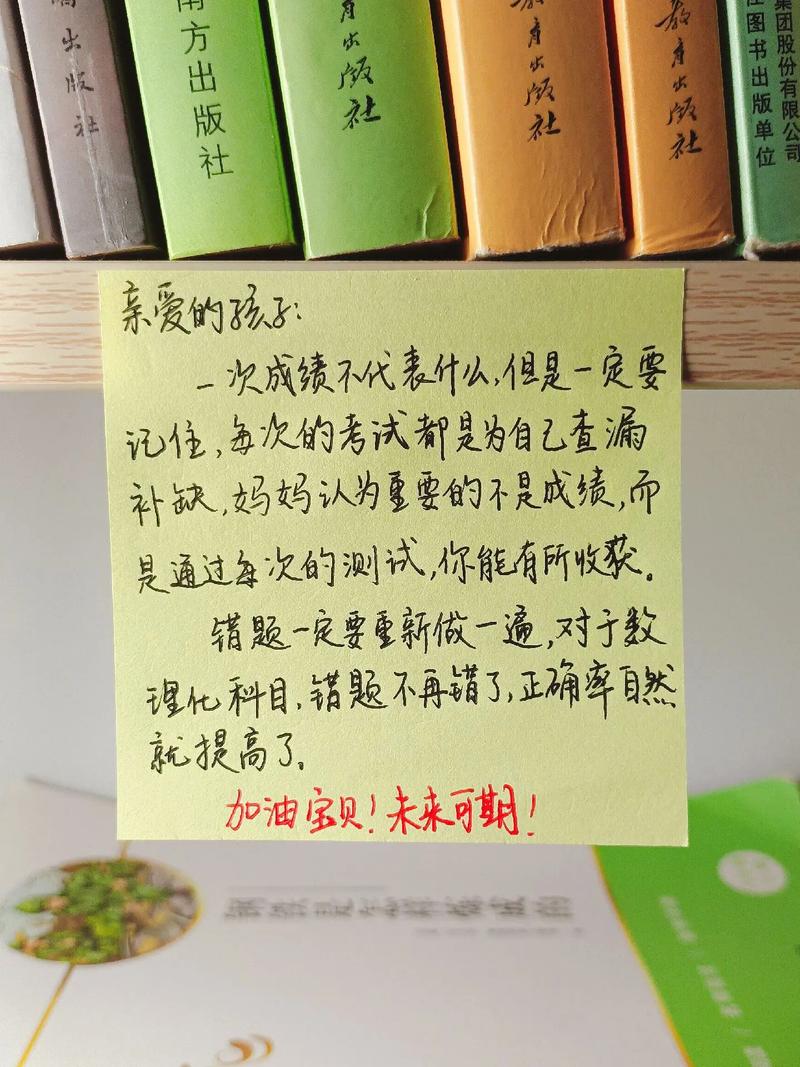 出版社
南方出版社
育出版社
教育出版社
教育出版社
集团股份有限公司
图书出版单位
亲爱的孩子:
一次成绩不代表什么,但是一定要
记住,每次的考试都是为自己查漏
补缺,妈妈认为重要的不是成绩,而
是通过每次的测试,你能有所收获。
错题一定要重新做一遍,对于数
理化科目,错题不再错了,正确率自然
就提高了。
加油宝贝!未来可期!
钢铁是怎样炼成的